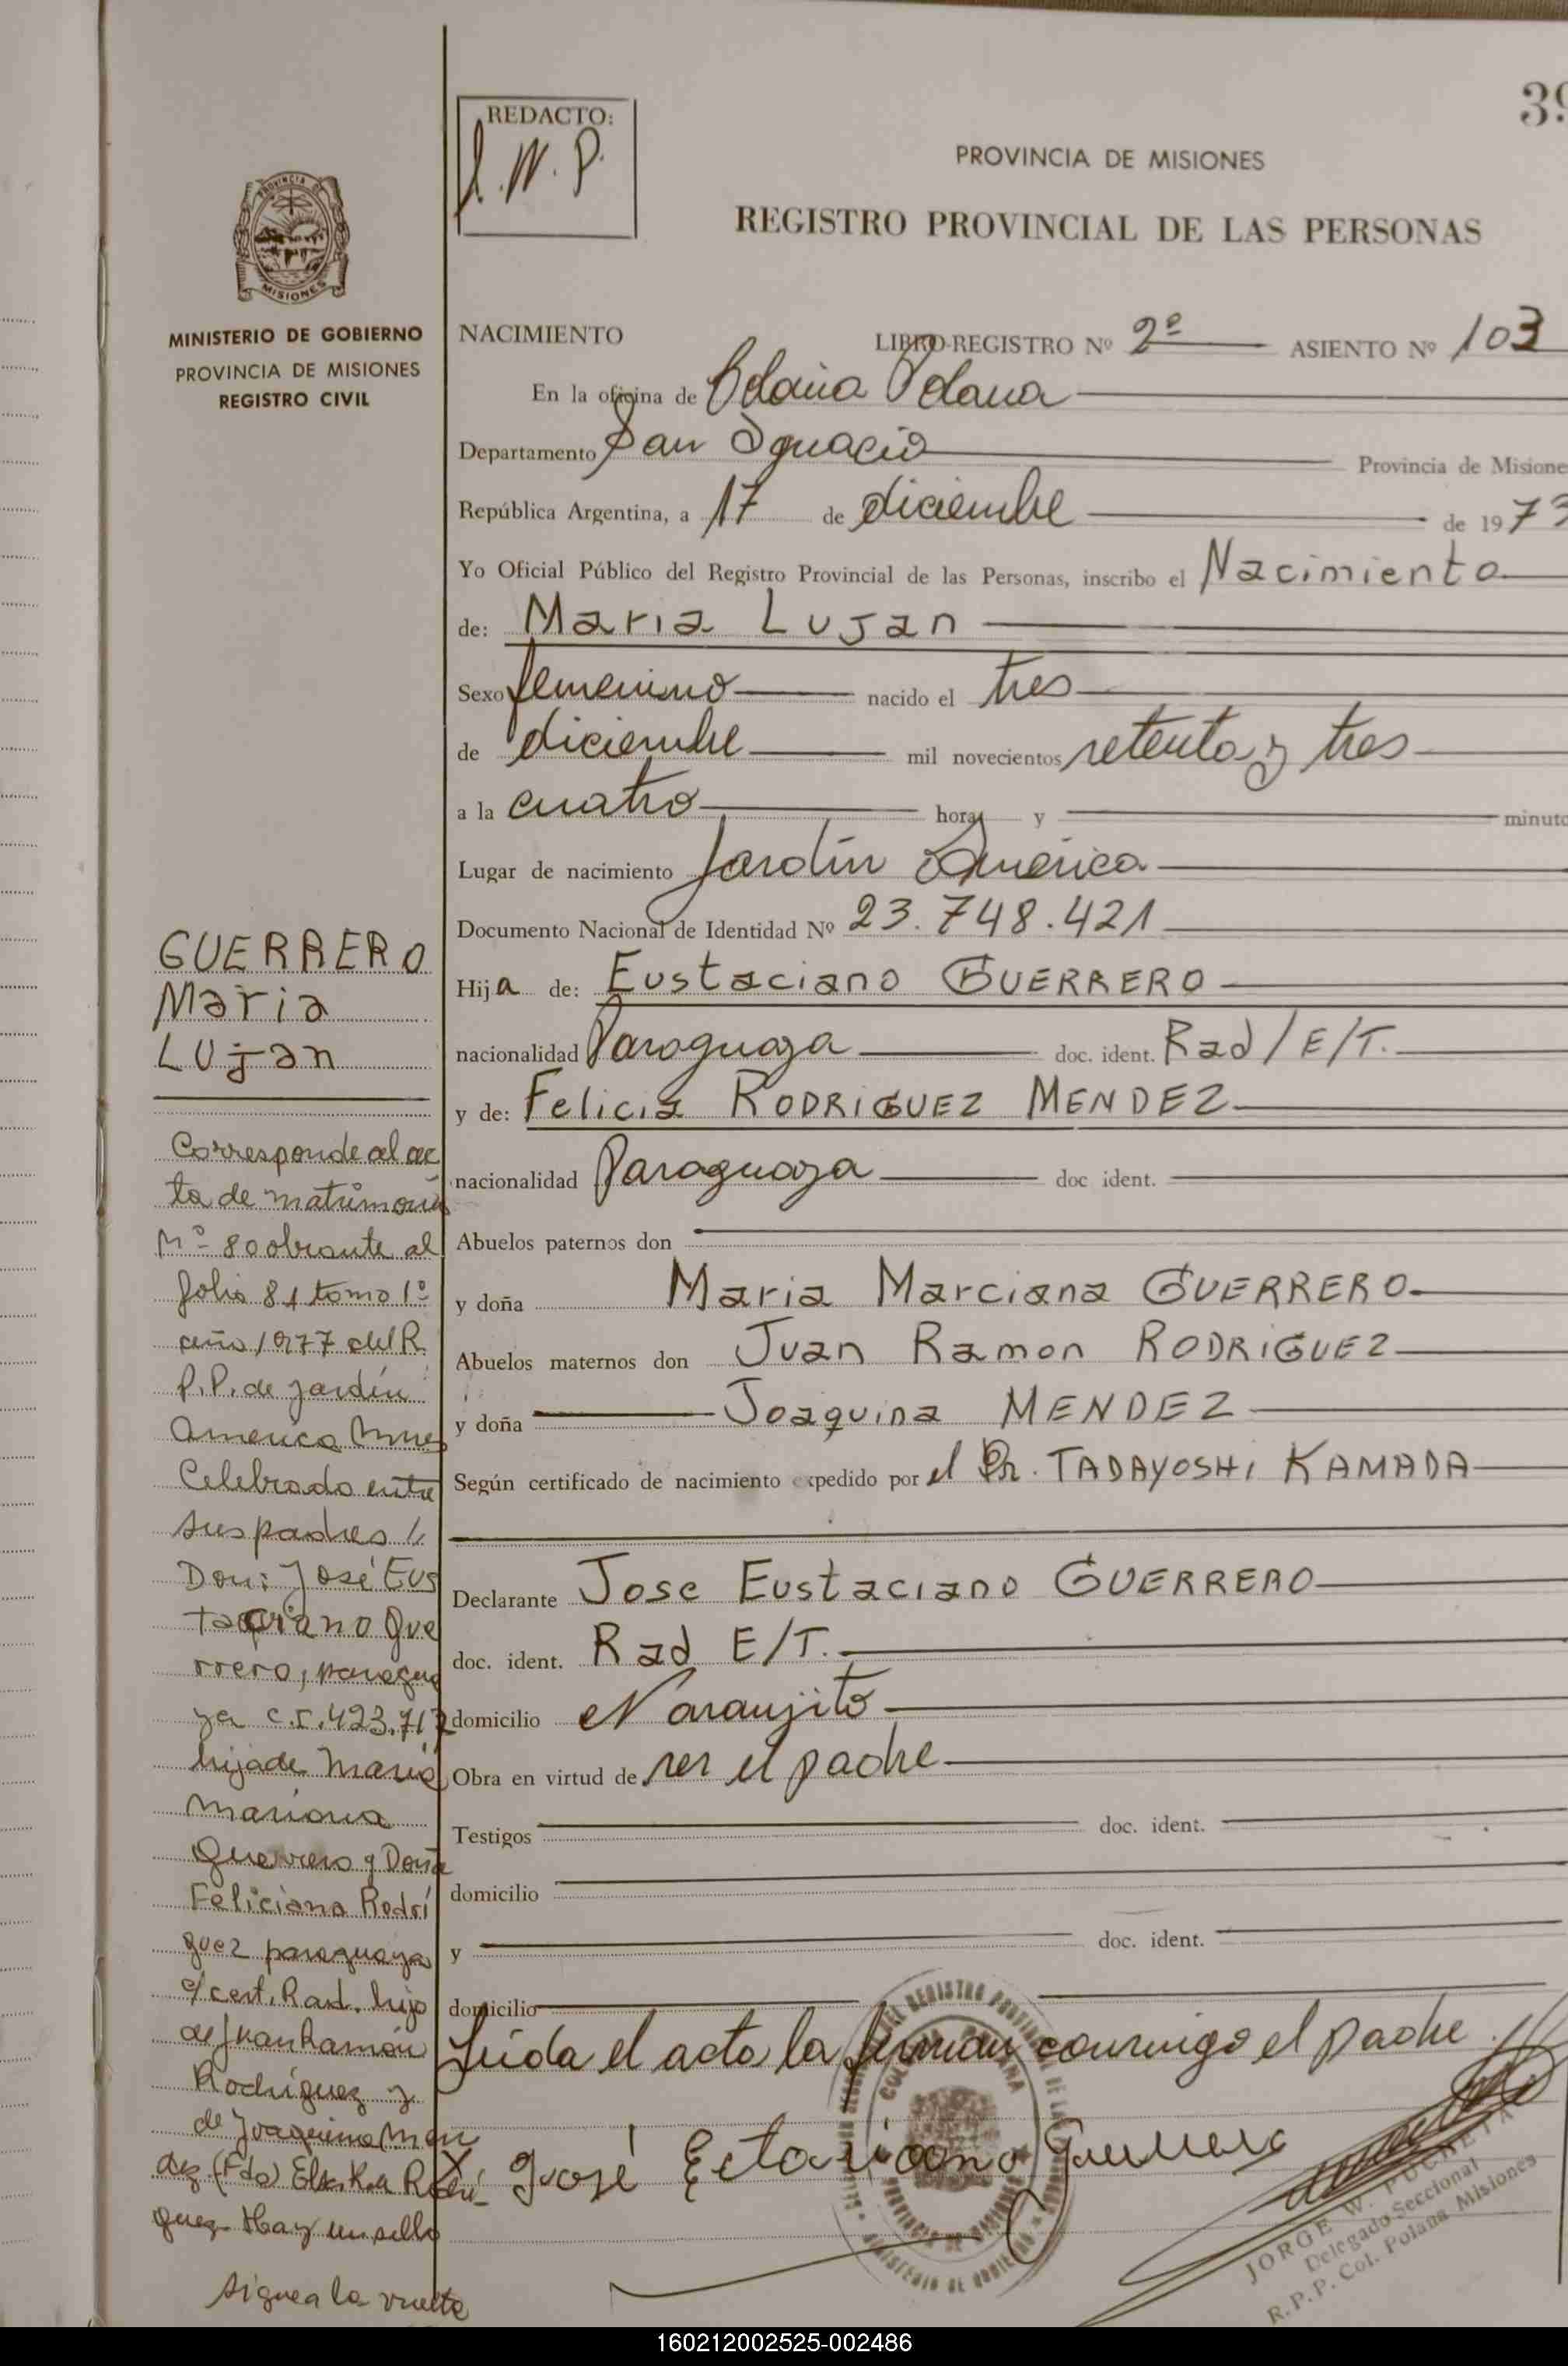 39
REDACTO:
J.W.P.
PROVINCIA DE MISIONES
REGISTRO PROVINCIAL DE LAS PERSONAS
MISIONES
MINISTERIO DE GOBIERNO
PROVINCIA DE MISIONES
REGISTRO CIVIL
NACIMIENTO LIBRO-REGISTRO Nº 2º ASIENTO Nº 103
En la oficina de Colonia Polana
Departamento San Ignacio Provincia de Misione
República Argentina, a 17 de diciembre de 1973
Yo Oficial Público del Registro Provincial de las Personas, inscribo el Nacimiento
de: Maria Lujan
Sexo femenino nacido el tres
de diciembre mil novecientos setenta y tres
a la cuatro hora y minuto
Lugar de nacimiento Jardín América
Documento Nacional de Identidad Nº 23.748.421
Hija de: Eustaciano GUERRERO
nacionalidad Paraguaya doc. ident. Rad/E/T.
y de: Felicia RODRIGUEZ MENDEZ
nacionalidad Paraguaya doc ident.
Abuelos paternos don
y doña Maria Marciana GUERRERO
Abuelos maternos don Juan Ramon RODRIGUEZ
y doña Joaquina MENDEZ
Según certificado de nacimiento expedido por el Dr. TADAYOSHI KAMADA
Declarante Jose Eustaciano GUERRERO
doc. ident. Rad E/T.
domicilio Naranjito
Obra en virtud de ser el padre
Testigos doc. ident.
domicilio
y doc. ident.
domicilio
Leída el acta la firman conmigo el padre
José Estaciano Guerrero
JORGE W.
Delegado Seccional
R.P.P. Col. Polana Misiones
GUERRERO
Maria
Lujan
Corresponde al ac
ta de matrimonio
Nº 80 obrante al
folio 81 tomo 1º
año 1977 del R.
P.P. de Jardín
America Mnes
Celebrado entre
sus padres
Don: José Eus
taciano Gue
rrero, paragua
ya C.I. 423.717
hija de Maria
Mariana
Guerrero y Doña
Feliciana Rodrí
guez paraguaya
c/cert. Rad. hija
de Juan Ramón
Rodríguez y
de Joaquina Men
dez (Fdo) Rodrí-
guez Hay un sello
Sigue a la vuelta
160212002525-002486